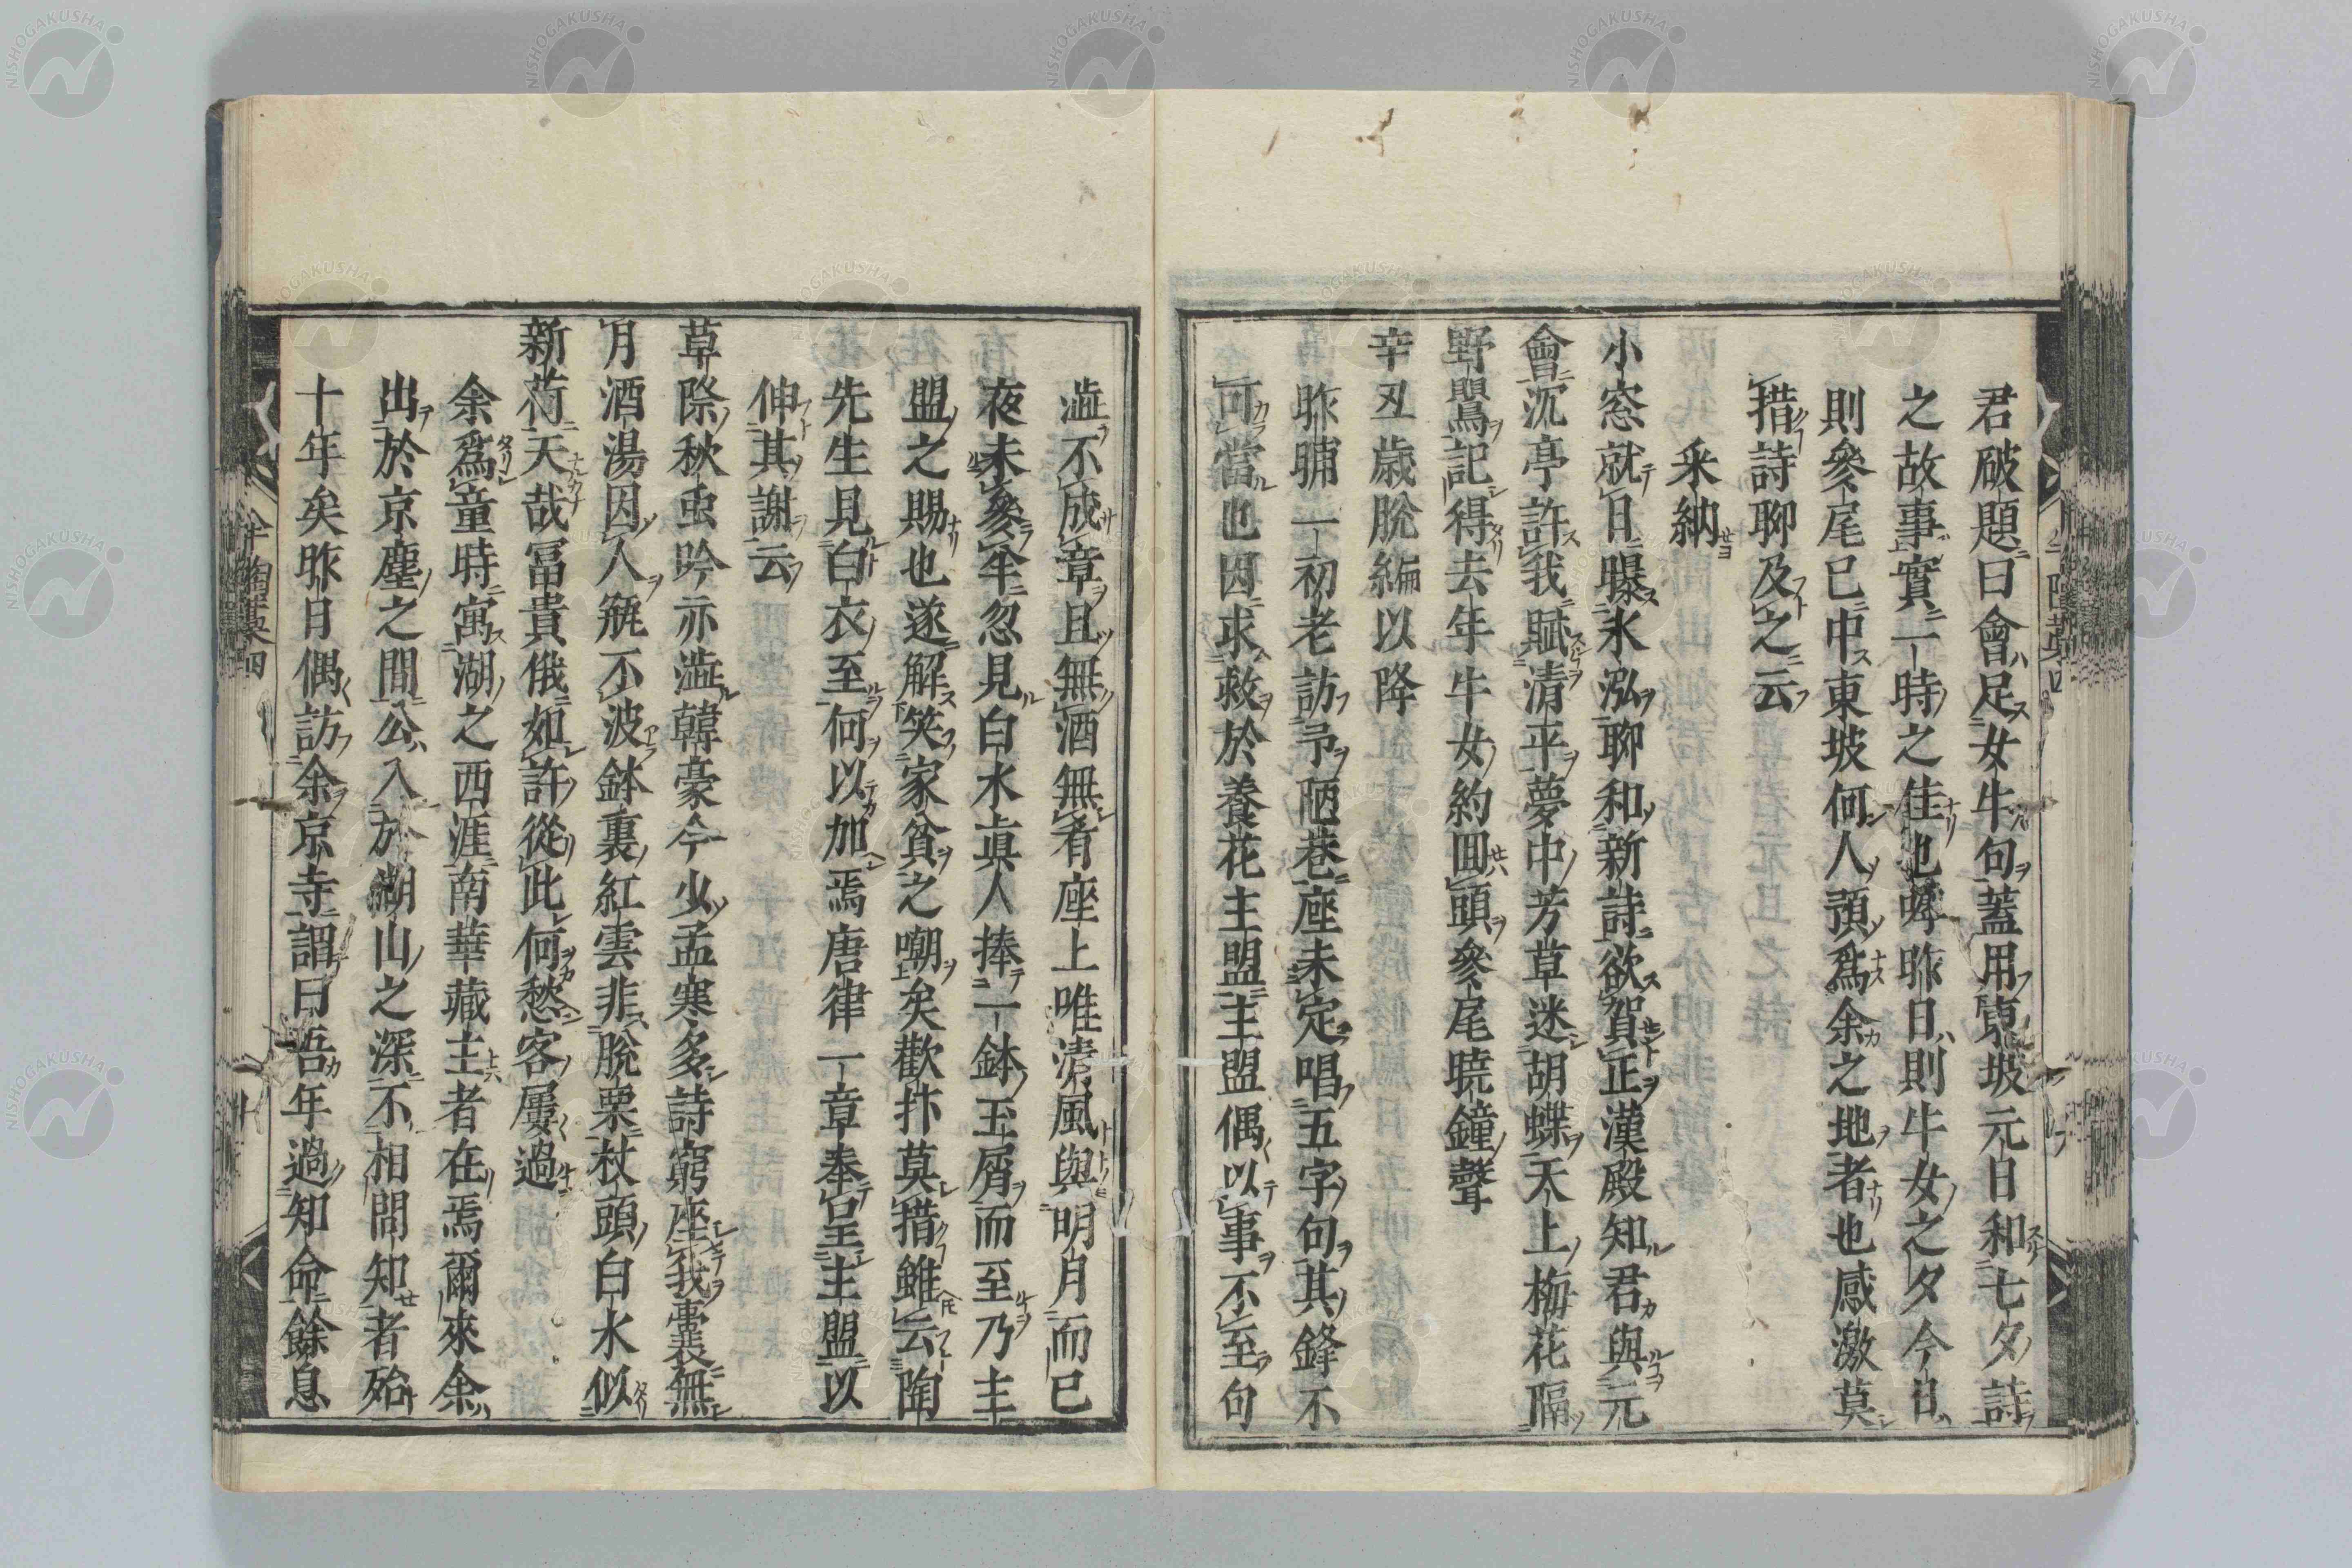 君破題曰會足女牛句蓋用東坡元日和七夕詩
之故事實一時之佳也嘑昨日則牛女之夕今日
則參尾已中東坡何人預爲余之地者也感激莫
措詩聊及之云
釆納
小窓就日曝氷泓聊和新詩欲賀正漢殿知君與元
會沉亭許我賦清平夢中芳草迷胡蝶天上梅花隔
野鸎記得去年牛女約囬頭參尾曉鐘聲
辛丑歲脫編以降
昨晡一初老訪予陋巷座未定唱五字句其鋒不
可當也因求救於養花主盟主盟偶以事不至句
澁不成章且無酒無肴座上唯清風與明月而已
夜未參半忽見白水真人捧一鉢玉屑而至乃主
盟之賜也遂解笑家貧之嘲矣歡抃莫措雖云陶
先生見白衣至何以加焉唐律一章奉呈主盟以
伸其謝云
草際秋虫吟亦澁韓豪今少孟寒多詩窮座我囊無
月酒湯因人甁不波鉢裏紅雲非脫粟杖頭白水似
新荷天哉冨貴俄如許從此何愁客屢過
余爲童時寓湖之西涯南華藏主者在焉爾來余
出於京塵之間公入於湖山之深不相聞知者殆
十年矣昨日偶訪余京寺謂曰吾年過知命餘息